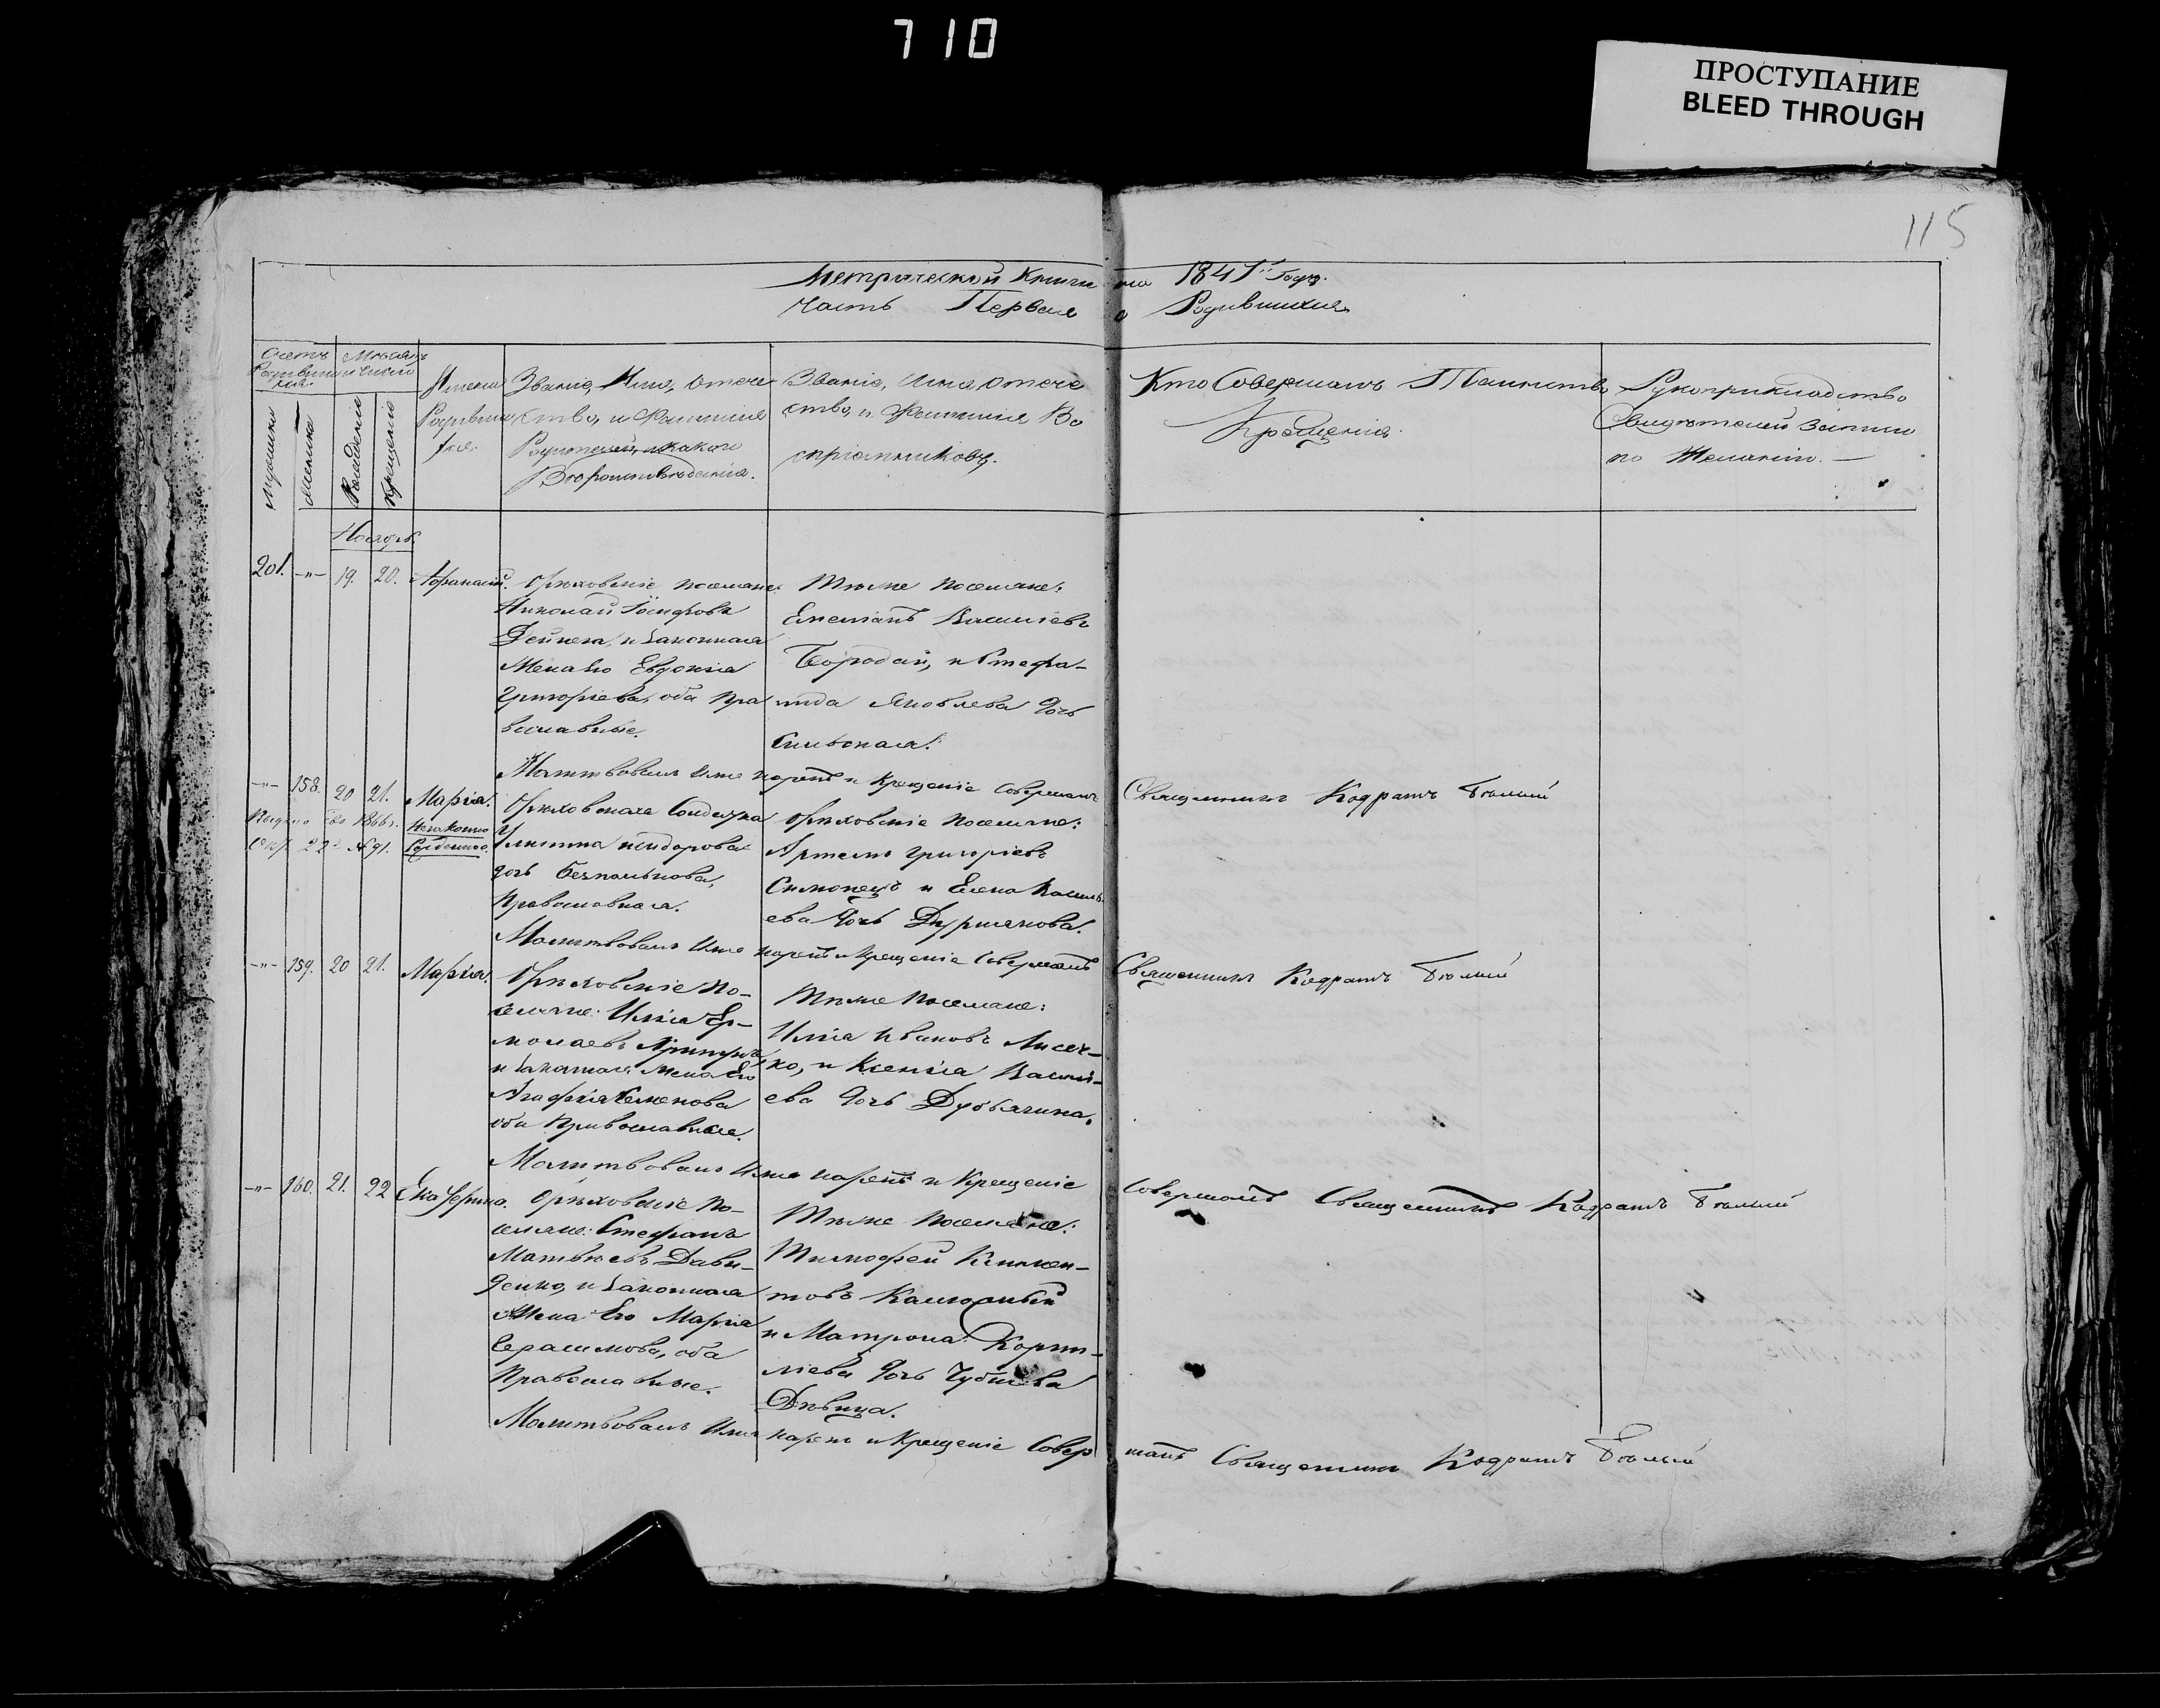 710
ПРОСТУПАНИЕ
BLEED THROUGH
115
Метрической Книги на 1841го Года.
Часть Первая о Родившихся
Счетъ Родившихся.
Мужеска
Женска
Месяцъ и Число
Рожденіе
Крещеніе
Имена Родившихся.
Званіе, Имя, Отече
ство, и Фамилія
Родителей, и какого
Вероисповеданія.
Званіе, Имя, Отече
ство, и Фамилія Во
спріемниковъ.
Кто Совершалъ Таинство
Крещенія.
Рукоприкладство
Свидетелей Записи
по Желанію. —
Ноябрь
201. -„- 19. 20. Афанасій.
Ореховскіе поселяне:
Николай Іосифовъ
Дейнега, и законная
Жена Его Евдокія
Григоріева, оба Пра
вославные.
Теже поселяне:
Емеліанъ Василіевъ
Бородай, и Стефа-
нида Яковлева Дочь
Молитвовалъ Имя нарекъ и Крещеніе Совершалъ Священникъ Кодратъ Белый
-„- 158. 20 21. Марія.
Незаконно
Рожденное.
22 №91.
Ореховская Солдатка
Улита
дочь
Православная.
Ореховскіе поселяне:
Артемъ Григоріевъ
Симонецъ и Елена Василь
ева Дочь
Молитвовалъ Имя нарекъ и Крещеніе Совершалъ Священникъ Кодратъ Белый
-„- 159. 20 21. Марія.
Ореховскіе По-
селяне: Илія Ер-
молаевъ
и законная Жена Его
Агафія Семенова
оба Православные.
Теже поселяне:
Илія Ивановъ Лисеч-
ко, и Ксенія Василі-
ева Дочь
Молитвовалъ Имя нарекъ и Крещеніе Совершалъ Священникъ Кодратъ Белый
-„- 160. 21. 22 Екатерина.
Ореховскіе По-
селяне: Стефанъ
Матвеевъ Дави-
денко, и законная
Жена Его Марія
Герасимова, оба
Православные.
Теже поселяне:
Тимофей Климен-
товъ
и Матрона Корни-
ліева Дочь
Девица.
Молитвовалъ Имя нарекъ и Крещеніе Совер шалъ Священникъ Кодратъ Белый